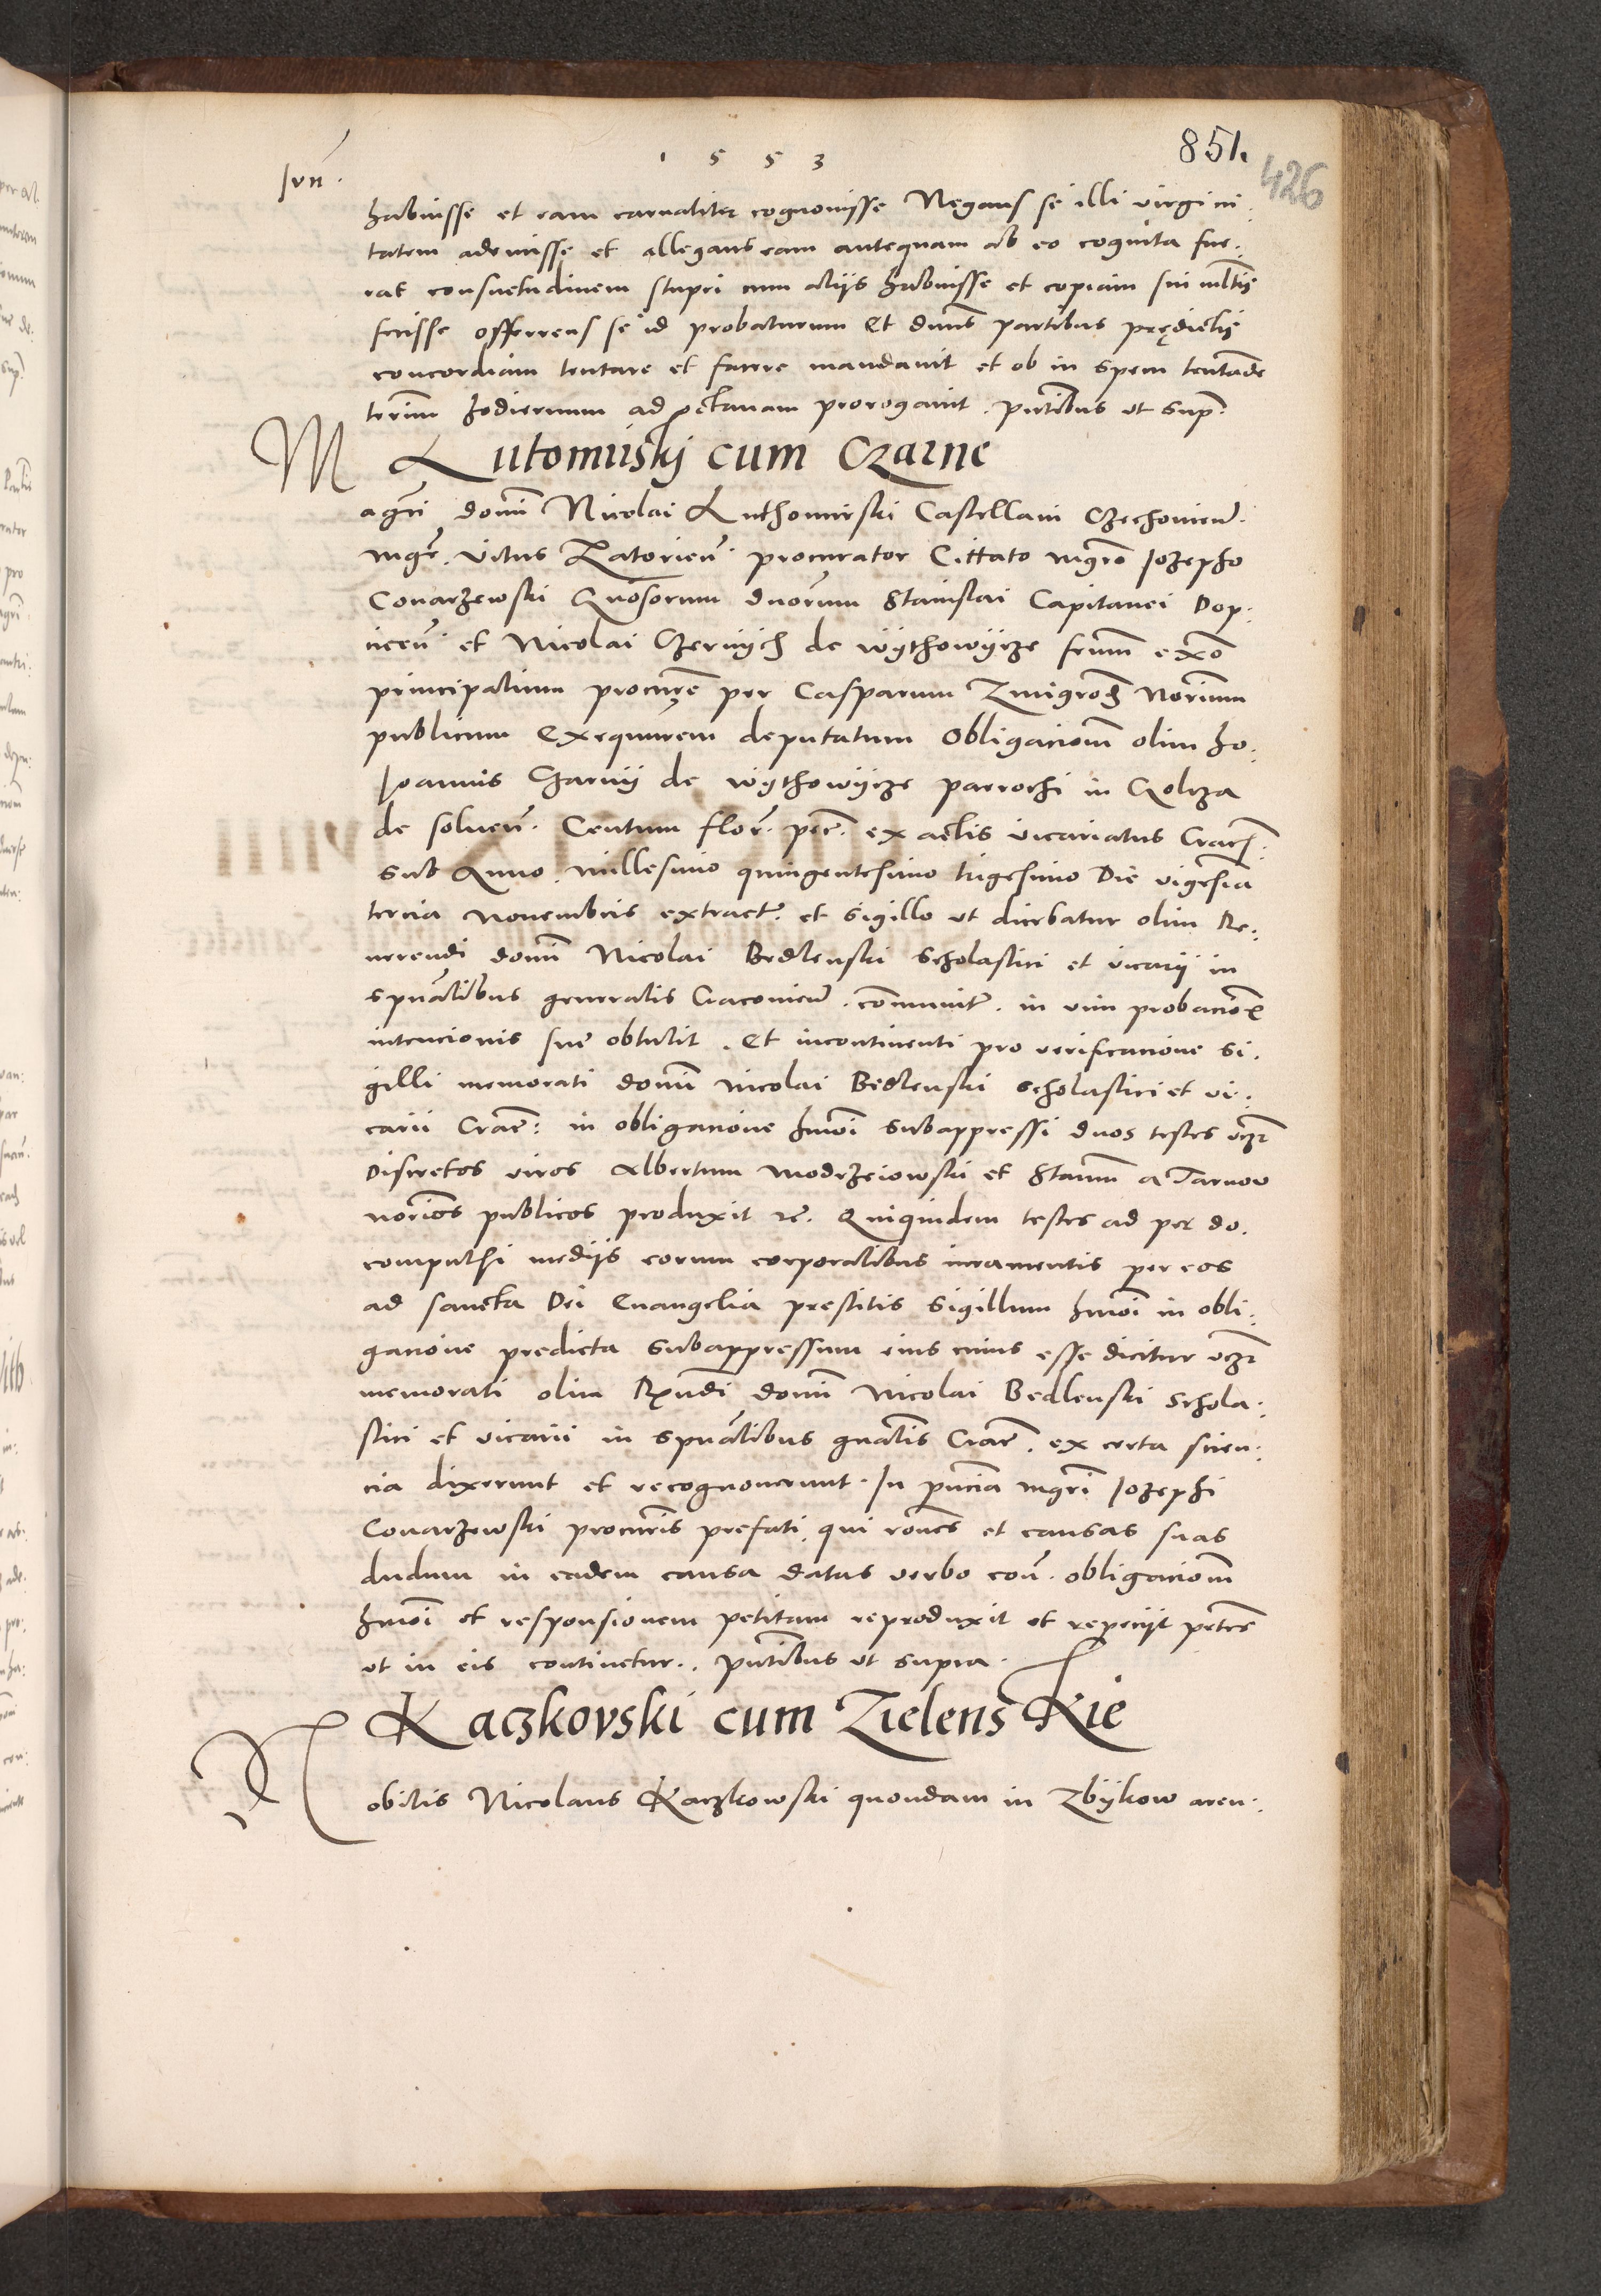 1 5 5 3
851.
426
Iun.
habuisse et eam carnaliter cognouisse Negans se illi virgini:
tatem ademisse et allegans eam antequam ab eo cognita fue:
rat consuetudinem stupri cum aliis habuisse et copiam sui multis
fecisse offerrens se id probaturum Et dnus partibus prędictis
concordiam tentare et facere mandauit et ob in spem tentande
termin hodiernum ad octauam prorogauit. pntibus ut sup.
Lutomirskj cum Czarne
Magci domi Nicolai Luthomirski Castellani Czechouien.
mgr. Vitus Zatorien. procurator Cittato mgro Jozepho
Conarzewski Gnosorum dnorum Stanislai Capitanei Dop:
nicen et Nicolai Czernych de wythowycze frum exo
principalium procure per Casparum Zmigrod Norium
publicum exequutrem deputatum Obligacionem olim ho:
Joannis Czarny de wythowycze parrochi in
de soluen. Centum flor. pec. ex actis vicariatus Crac:
sub Anno millesimo quingentesimo trigesimo Die vigesia
tercia nouembris extract. et sigillo ut dicebatur olim Re:
uerendi domi Nicolai Bedlenski scholastici et vicarij in
spualibus generalis Cracouien. communit. in vim probacionis
intencionis sue obtulit. Et incontinenti pro verificacione si:
gilli memorati domi Nicolai Bedlenski scholastici et vi:
carii Crac: in obligacione hmoi subappressi duos testes vcz
Discretos viros Albertum modrzeiowski et Stanm a Tarnow
norios publicos produxit rc. Quiquidem testes ad per do.
compulsi mediis eorum corporalibus iuramentis per eos
ad sancta Dei Euangelia prestitis sigillum hmoi in obli:
gacione predicta subappressum eius cuius esse dicitur vcz
memorati olim Rndi domi Nicolai Bedlenski schola:
stici et vicarii in spualibus gnalis Crac. ex certa scien:
cia dixerunt et recognouerunt. In pncia mgri Jozephi
Conarzewski procuris prefati, qui rones et causas suas
dudum in eadem causa datas verbo con. obligacionem
hmoi et responsionem petitam reproduxit et repeciit petens
ut in eis continetur. pntibus ut supra.
Kaczkovski cum Zielenskie
Nobilis Nicolaus Kaczkowski quondam in Zbykow aren: